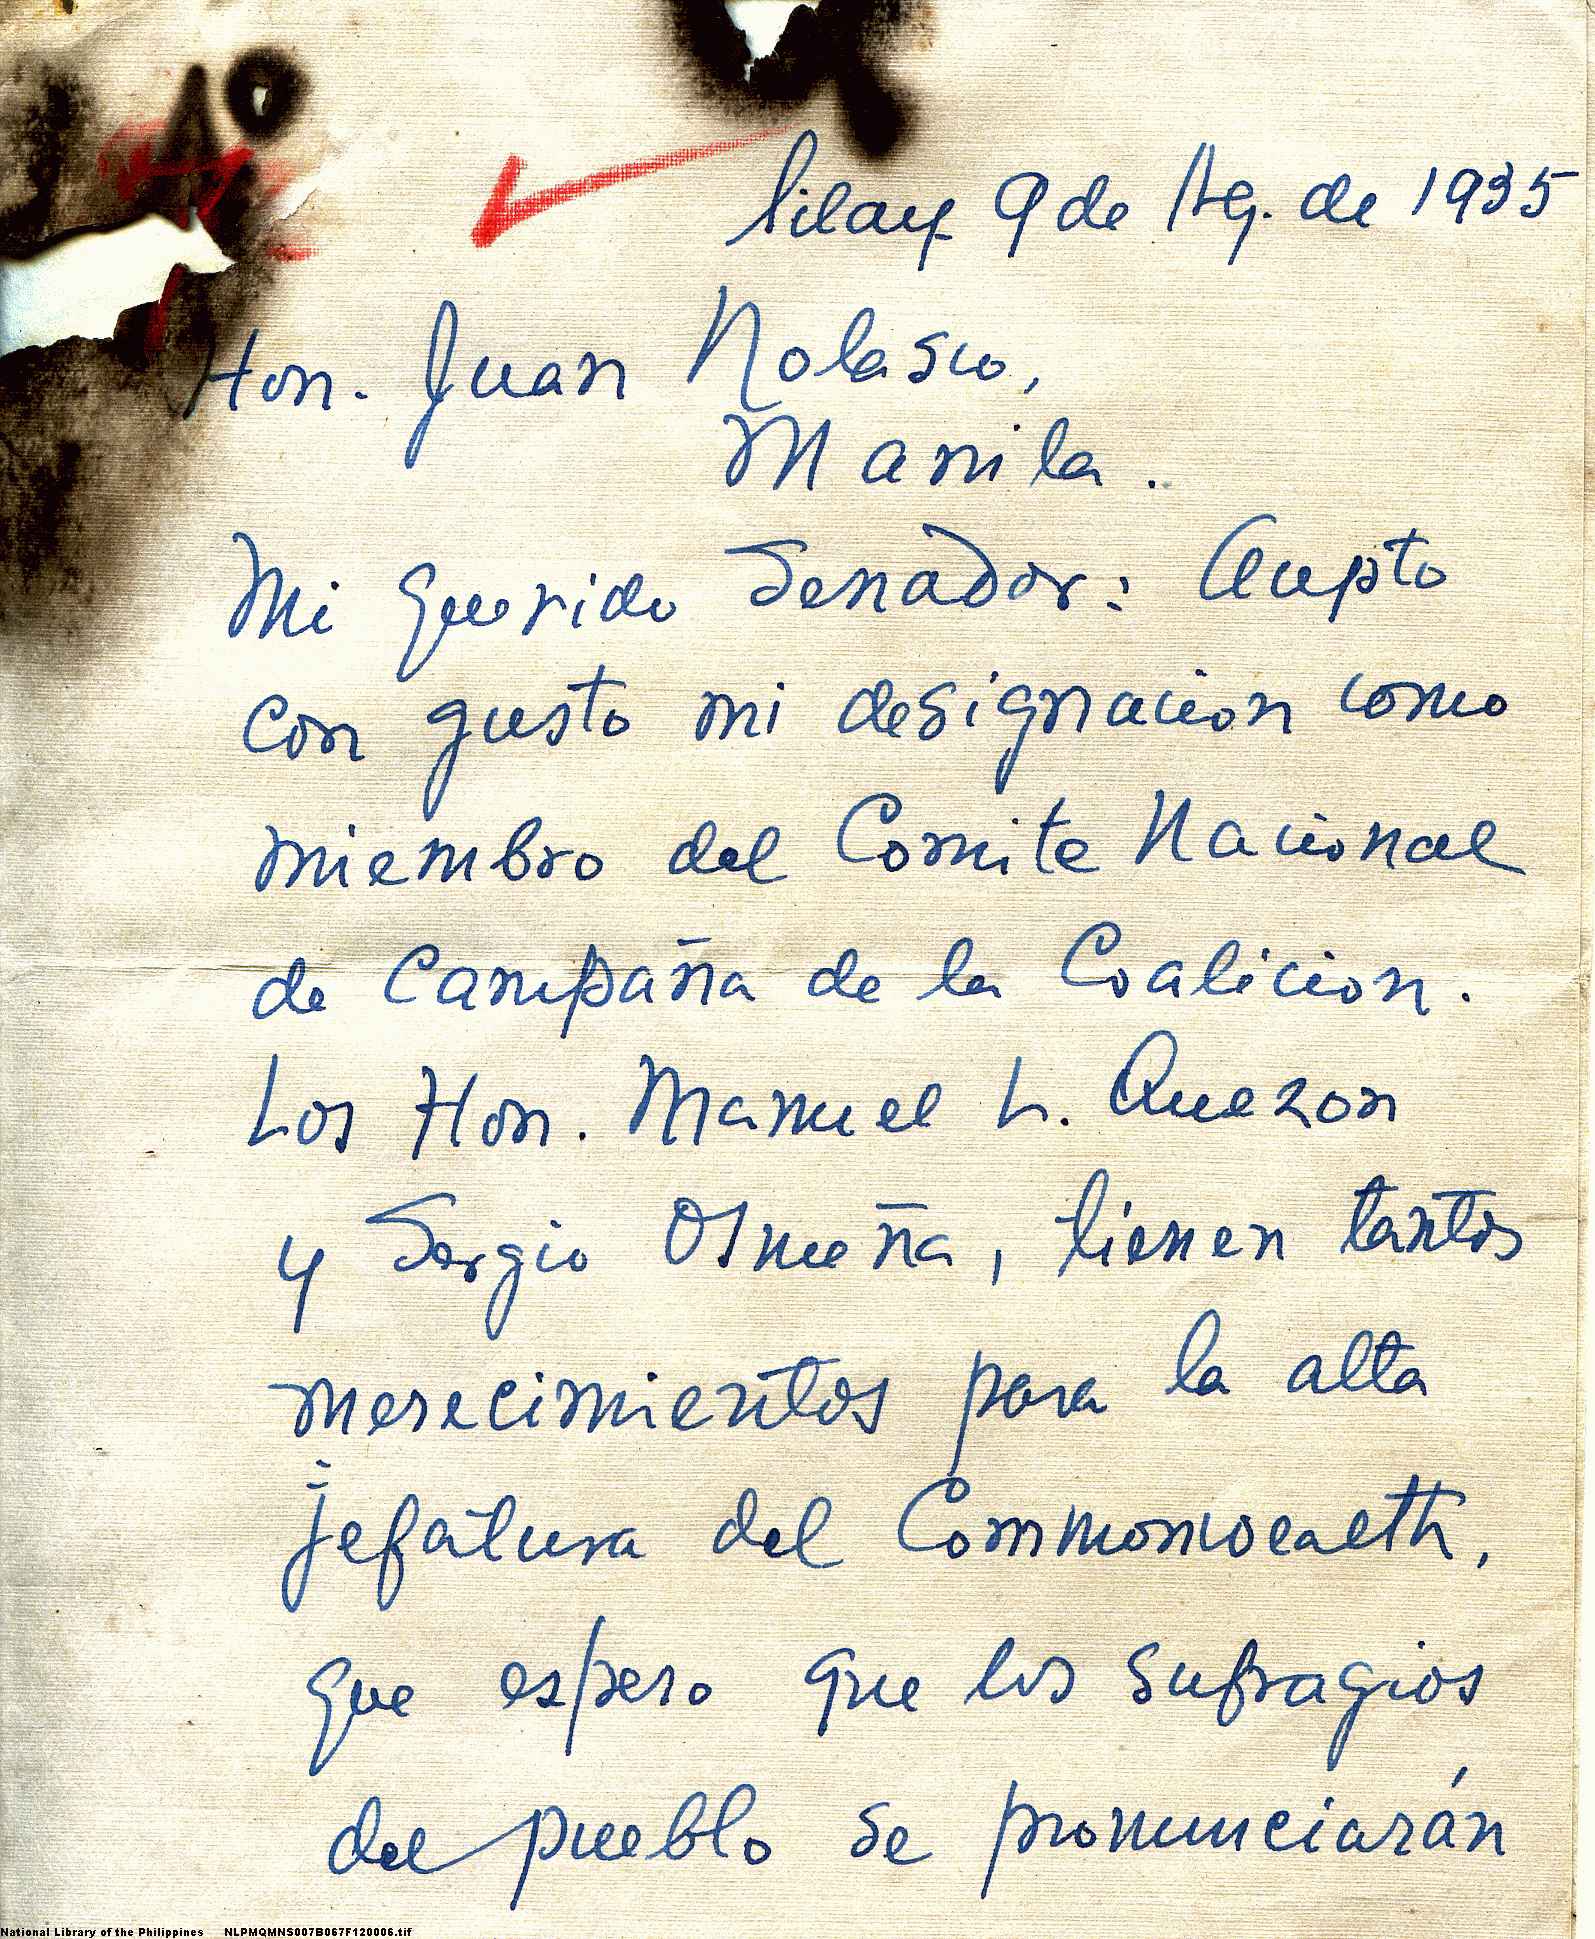 Silay 9 de Ag. de 1935
Hon. Juan Nolasco,
Manila.
Mi querido Senador: Acepto
con gusto mi designacion como
miembro del Comite Nacional
de Campaña de la Coalicion.
Los Hon. Manuel L. Quezon
y Sergio Osmeña, tienen tantos
merecimientos para la alta
jefatura del Commonwealth,
que espero que los sufragios
del pueblo se pronunciarán
National Library of the Philippines NLPMQMNS007B067F120006.tif